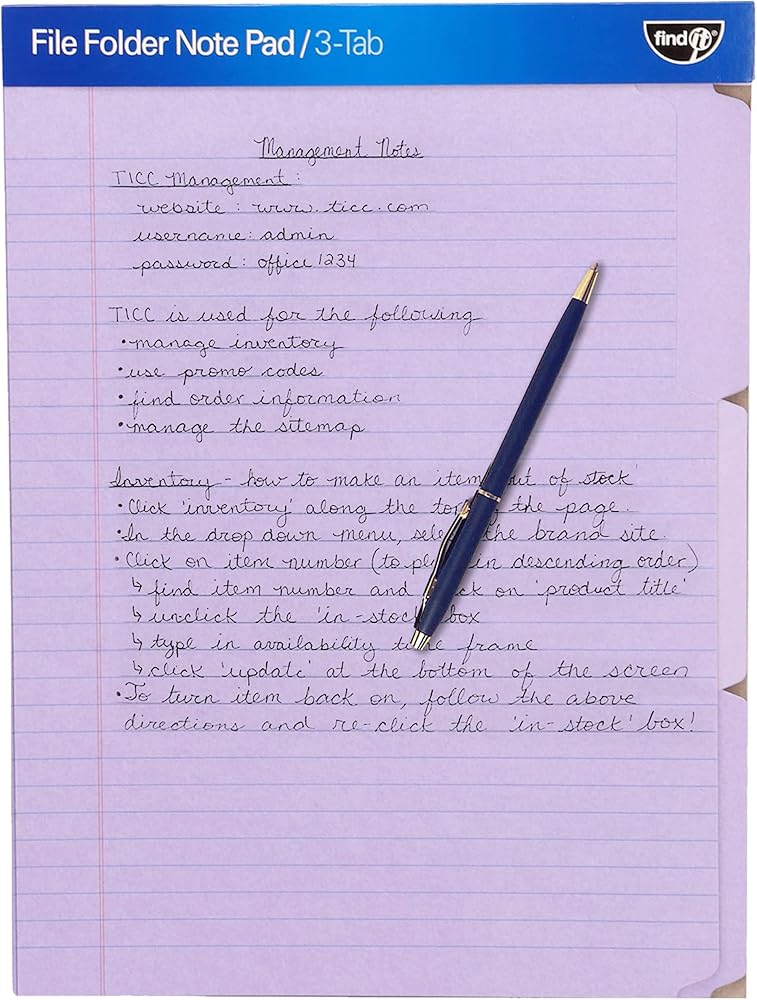 File Folder Note Pad / 3-Tab
find it®
Management Notes
TICC Management:
website: www.ticc.com
username: admin
password: office1234
TICC is used for the following
•manage inventory
•use promo codes
•find order information
•manage the sitemap
Inventory - how to make an item out of stock
•Click 'inventory' along the top the page.
•In the drop down menu, the brand site.
•Click on item number (to in descending order)
↳ find item number and on 'product title'
↳ unclick the 'in-stock' box
↳ type in availability time frame
↳ click 'update' at the bottom of the screen
•To turn item back on, follow the above
directions and re-click the 'in-stock' box!